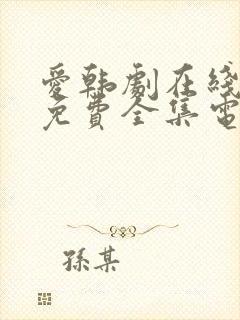 愛韩劇在綫
免費全集電
孫某